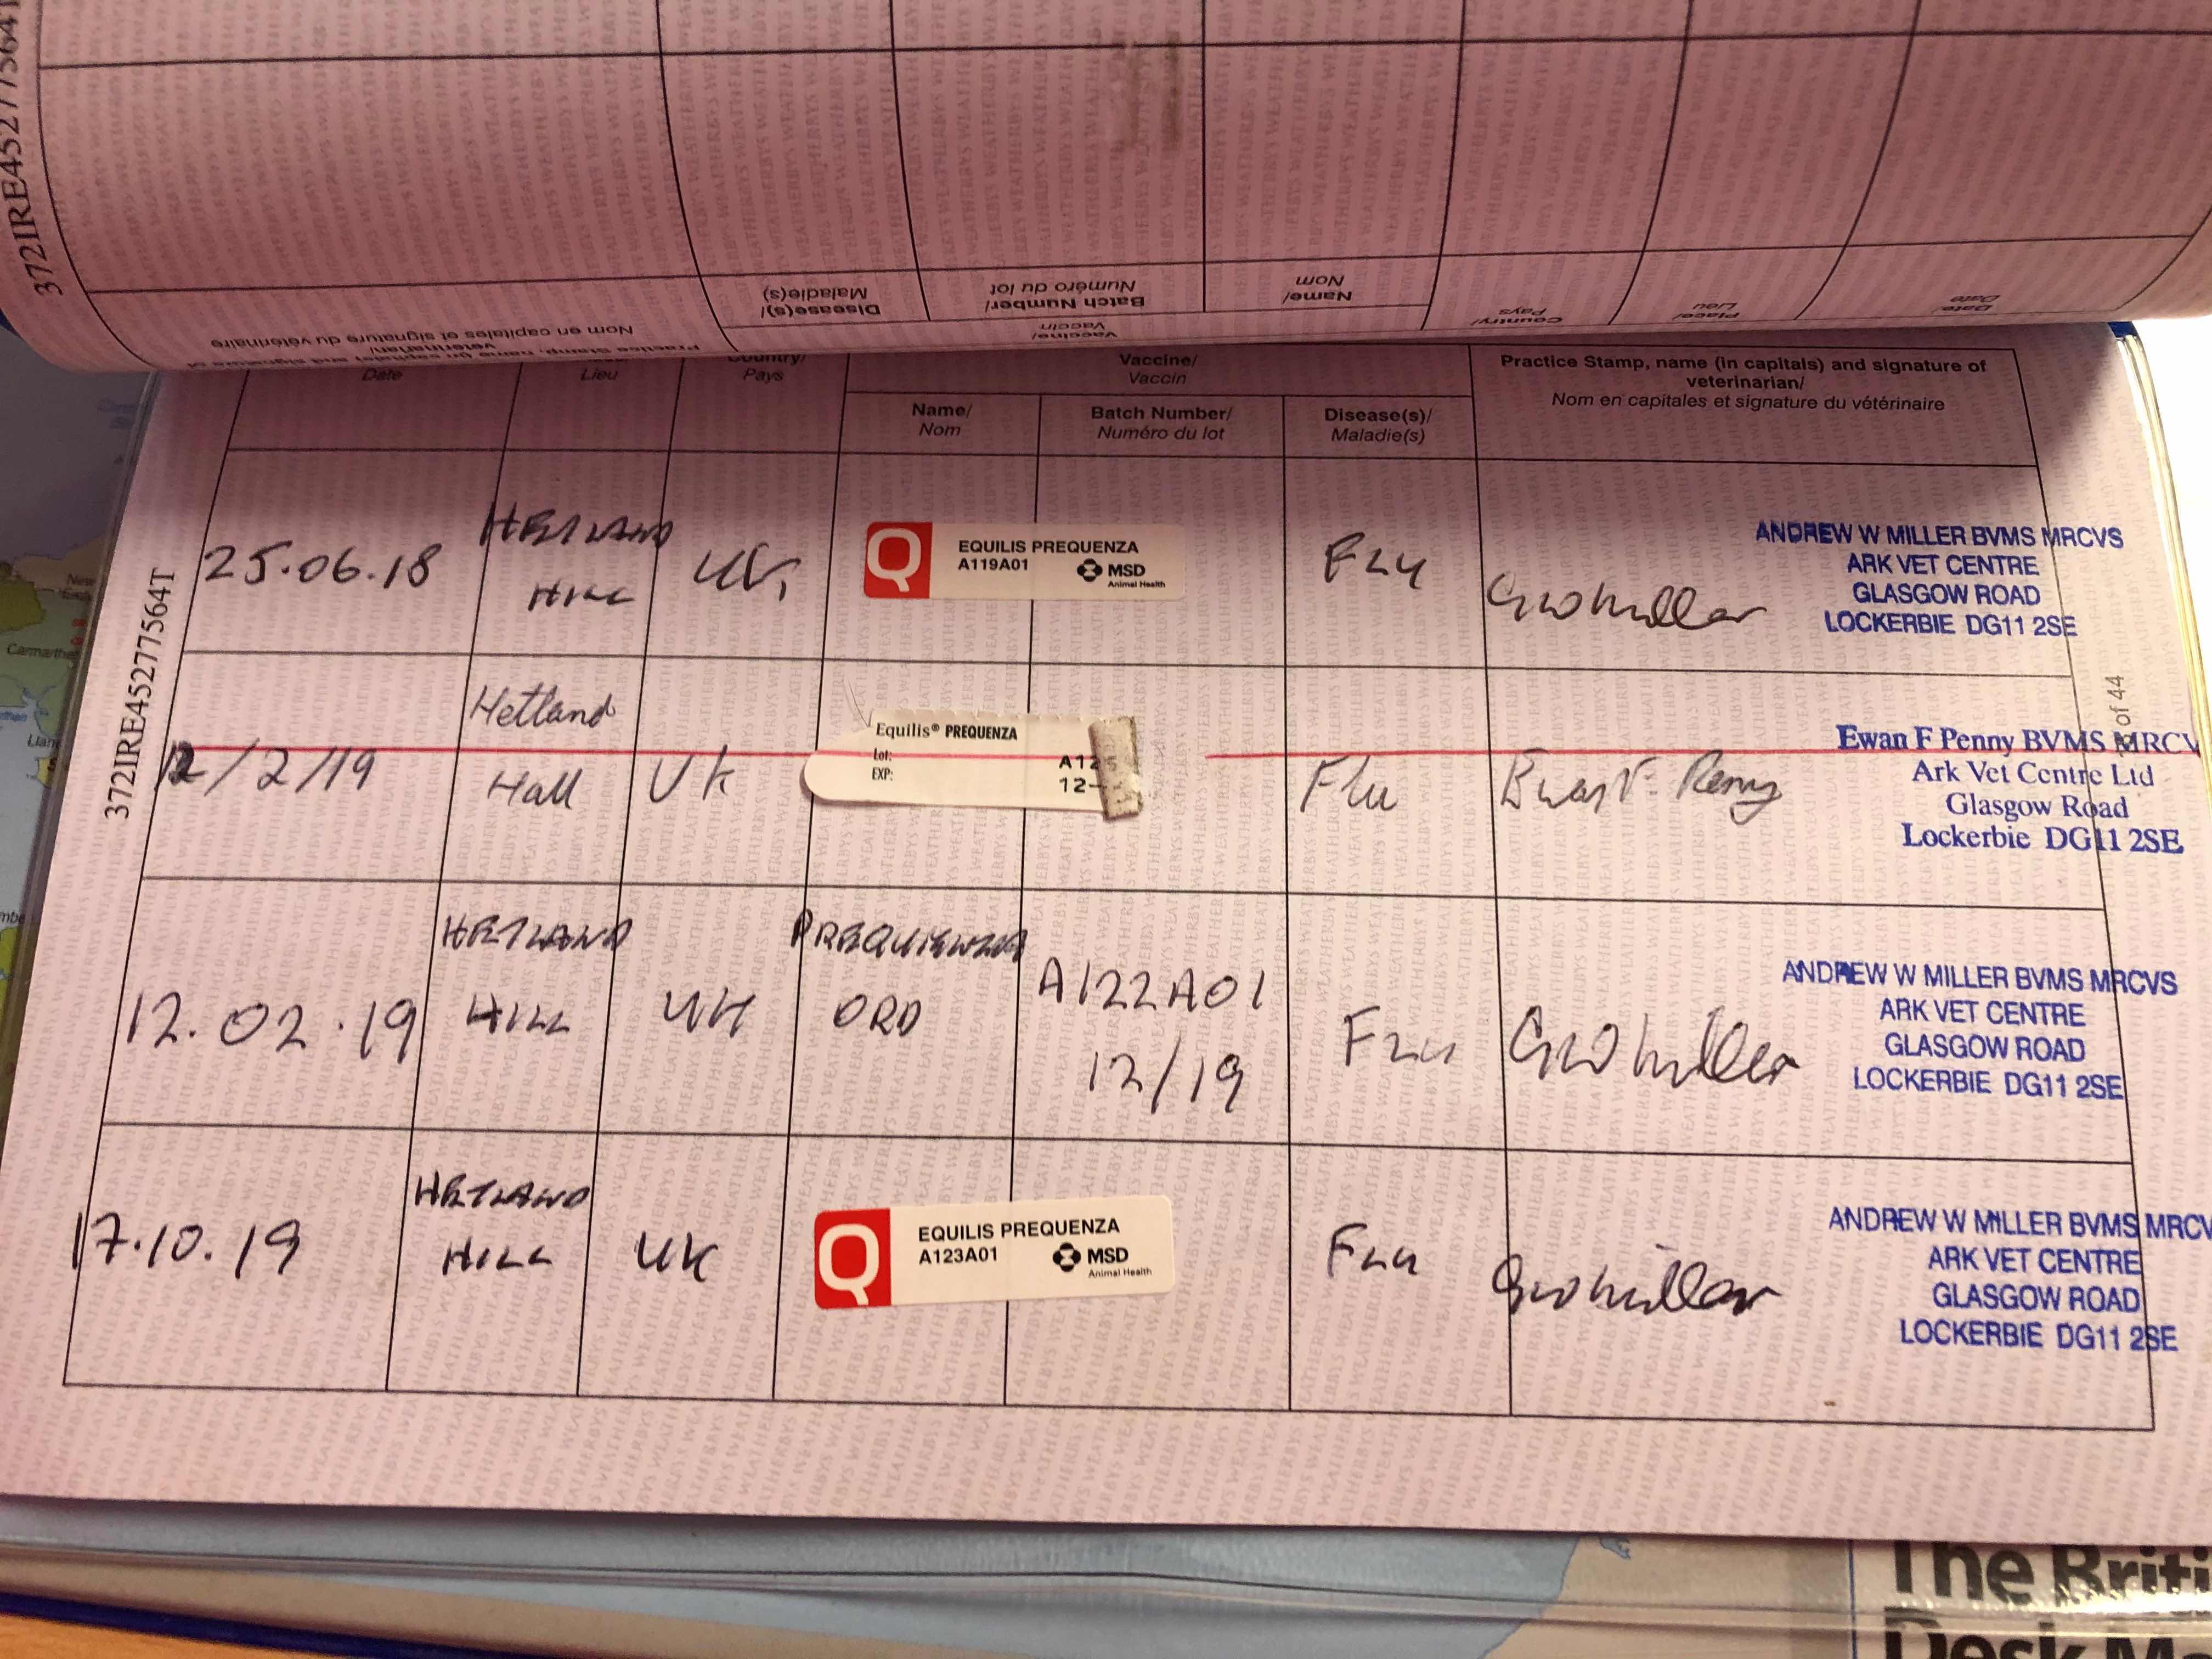 372IRE45277564T
Nom en capitales et signature du vétérinaire
Practice Stamp, name (in capitals) and signature of
veterinarian/
Disease(s)/
Maladie(s)
Batch Number/
Numéro du lot
Vaccine/
Vaccin
Name/
Nom
Country/
Pays
Place/
Lieu
Date/
Date
372IRE45277564T
Date
Lieu
Country/
Pays
Vaccine/
Vaccin
Name/
Nom
Batch Number/
Numéro du lot
Disease(s)/
Maladie(s)
Practice Stamp, name (in capitals) and signature of
veterinarian/
Nom en capitales et signature du vétérinaire
25.06.18
HETLAND
HILL
UK
EQUILIS PREQUENZA
A119A01
MSD
Animal Health
FLU
ANDREW W MILLER BVMS MRCVS
ARK VET CENTRE
GLASGOW ROAD
LOCKERBIE DG11 2SE
of 44
12/2/19
Hetland
Hall
UK
Equilis® PREQUENZA
Lot:
EXP:
A12
12-
Flu
Ewan F. Penny
Ewan F Penny BVMS MRCV
Ark Vet Centre Ltd
Glasgow Road
Lockerbie DG11 2SE
12.02.19
HETLAND
HILL
UK
A122A01
12/19
FLU
ANDREW W MILLER BVMS MRCVS
ARK VET CENTRE
GLASGOW ROAD
LOCKERBIE DG11 2SE
17.10.19
HETLAND
HILL
UK
EQUILIS PREQUENZA
A123A01
MSD
Animal Health
FLU
ANDREW W MILLER BVMS MRCV
ARK VET CENTRE
GLASGOW ROAD
LOCKERBIE DG11 2SE
The Briti
Desk Ma